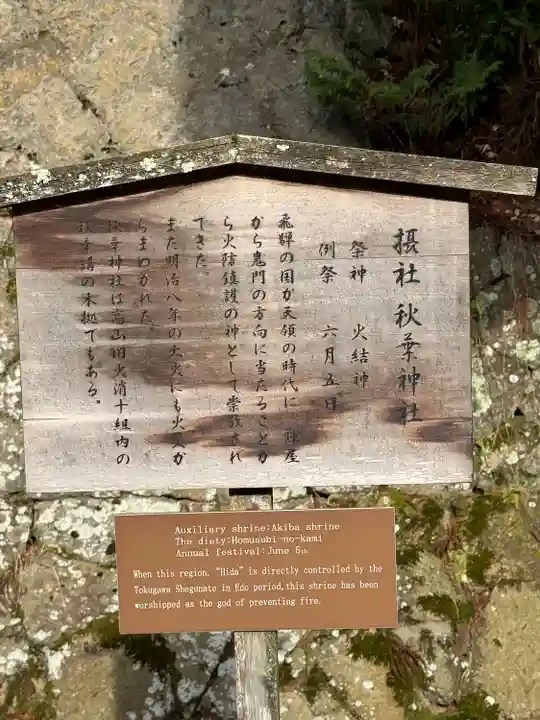 摂社 秋葉神社
祭神 火結神
例祭 六月五日
飛騨の国が天領の時代に 陣屋
から鬼門の方向に当たることか
ら火防鎮護の神として崇敬され
てきた。
また明治八年の大火にも火災が
らまぬかれた。
秋葉神社は高山旧火消十組内の
秋葉講の本拠でもある。
Auxiliary shrine:Akiba shrine
The diety:Homusubi-no-kami
Annual festival:June 5th
When this region, "Hida" is directly controlled by the
Tokugawa Shogunate in Edo period, this shrine has been
worshipped as the god of preventing fire.